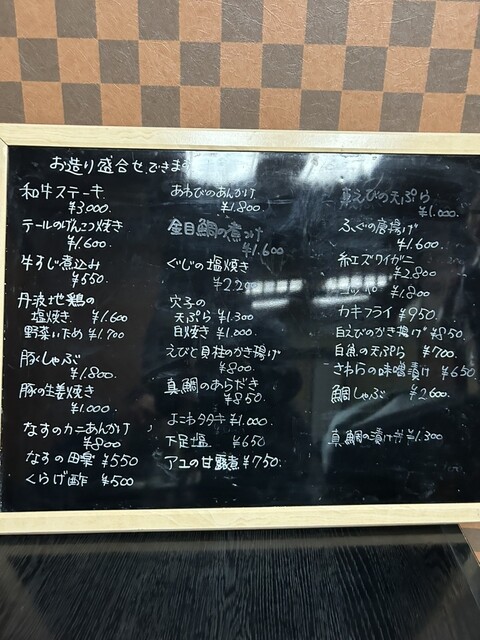 お造り盛合せできます
和牛ステーキ
¥3,000.
テールのげんこつ焼き
¥1.600
牛すじ煮込み
¥550
丹波地鶏の
塩焼き ¥1.600
野菜いため ¥1.700
豚しゃぶ
¥1.800
豚の生姜焼き
¥1.000
なすのカニあんかけ
¥800
なすの田楽 ¥550
くらげ酢 ¥500
あわびのあんかけ
¥1.800
金目鯛の煮つけ
¥1.600
ぐじの塩焼き
¥2.200
穴子の
天ぷら ¥1.300
白焼き ¥1.000.
えびと貝柱のかき揚げ
¥800
真鯛のあらだき
¥850
よこわタタキ ¥1.000
下足塩 ¥650
アユの甘露煮 ¥750.
えびの天ぷら
¥1.000.
ふぐの唐揚げ
¥1.600
紅ズワイガニ
¥2.800
コッペ ¥1.800
カキフライ ¥950
白えびのかき揚げ ¥850
白魚の天ぷら ¥700
さわらの味噌漬け ¥650
鯛しゃぶ ¥2.600
真鯛の漬け丼 ¥1.300